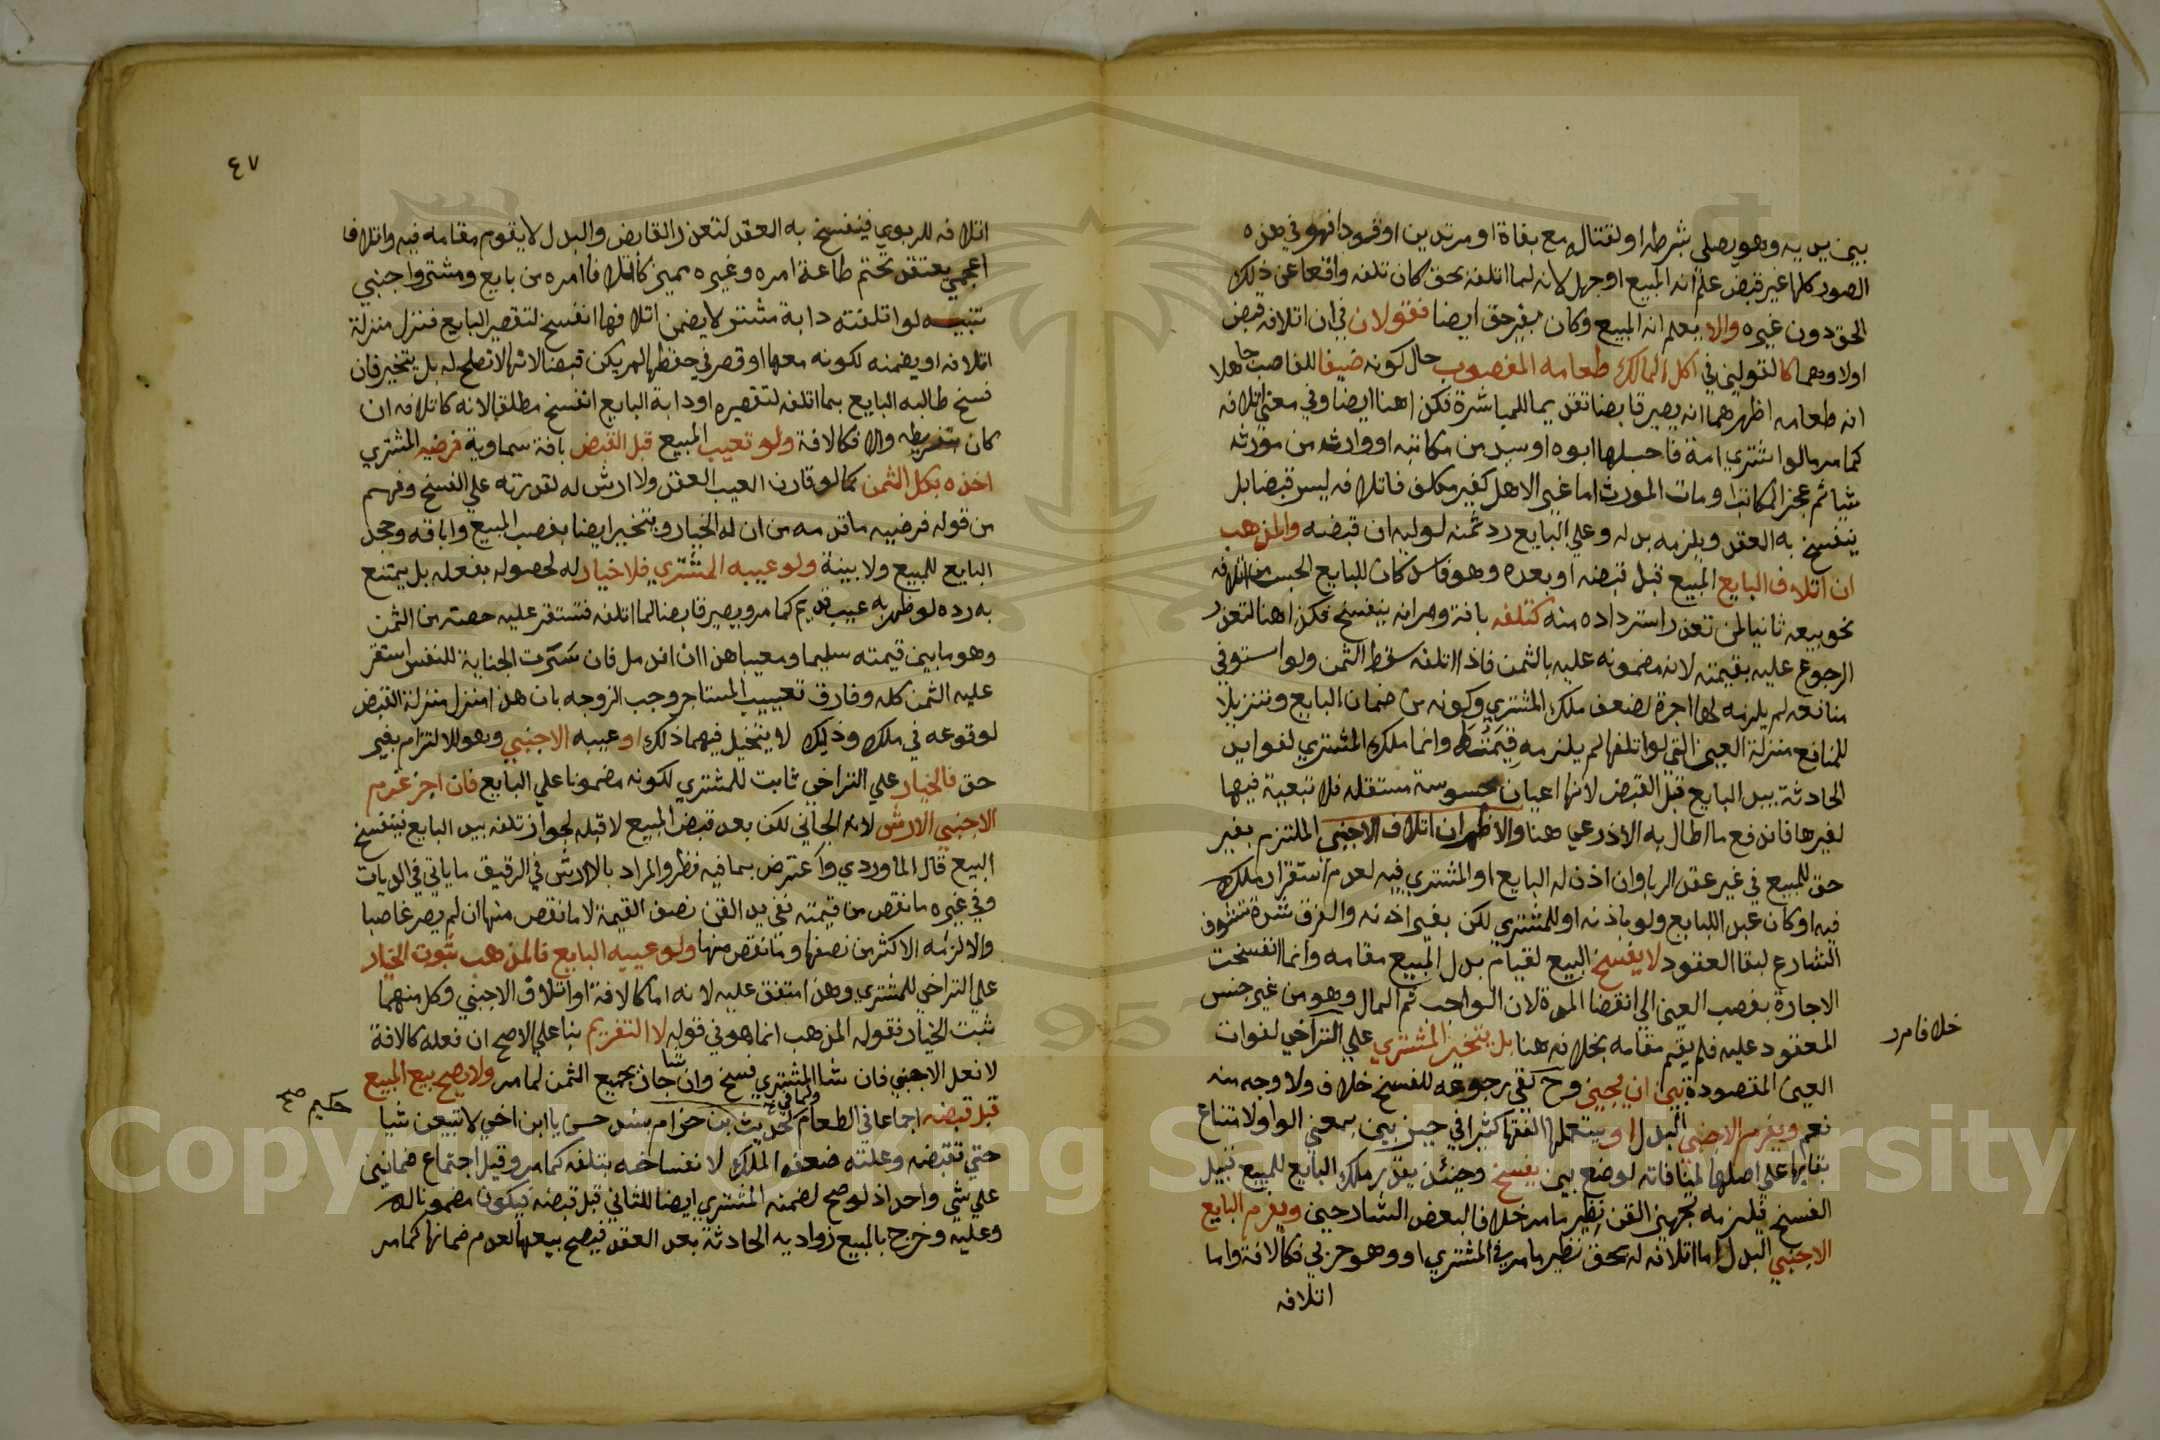 بين يديه وهو يصلي بشرطه او لقتاله مع بغاة او مرتدين او قودا فهو في هذه
الصور كلها غير قبض علم انه المبيع او جهل لانه لما اتلفه بحق كان تلفه واقعا عن ذلك
الحق دون غيره والا يعلم انه المبيع وكان بغير حق ايضا فقولان في ان اتلافه قبض
اولا وهما كالقولين في اكل المالك طعامه المغصوب حال كونه ضيفا للغاصب جاهلا
انه طعامه اظهرهما انه يصير قابضا تقديما للمباشرة فكذا هنا ايضا وفي معنى اتلافه
كما مر مالو اشترى امة فاحبلها ابوه او سيد من مكاتبه او وارث من مورثه
شيا ثم عجز المكاتب او مات المورث اما غير الاهل كغير مكلف فاتلافه ليس قبضا بل
ينفسخ به العقد ويلزمه بدله وعلى البايع رد ثمنه لوليه ان قبضه والمذهب
ان اتلاف البايع المبيع قبل قبضه او بعده وهو فاسد كان للبايع الحبس من اتلافه
نحو بيعه ثانيا لمن تعذر استرداده منه كتلفه بافة ومر انه ينفسخ فكذا هنا لتعذر
الرجوع عليه بقيمته لانه مضمونه عليه بالثمن فاذا اتلفه سقط الثمن ولو استوفى
منافعه لم يلزمه لها اجرة لضعف ملك المشتري وكونه من ضمان البايع وتنزيلا
للمنافع منزلة العين التي لو اتلفها لم يلزمه قيمتها وانما ملك المشتري لفوايد
الحادثة بيد البايع قبل القبض لانها اعيان محسوسة مستقلة فلا تبعية فيها
لغيرها فاندفع ما اطال به الاذرعي هنا والاظهر ان اتلاف الاجنبي الملتزم بغير
حق للمبيع في غير عقد الربا وان اذن له البايع او المشتري فيه لعدم استقرار ملكه
فيه او كان عبد البايع ولو باذنه او للمشتري لكن بغير اذنه والفرق شدة تشوف
الشارع لبقا العقود لا يفسخ البيع لقيام بدل المبيع مقامه وانما انفسخت
الاجارة بغصب العين الى انقضا المدة لان الواجب ثم المال وهو من غير جنس
المعقود عليه فلم يقم مقامه بخلافه هنا بل يتخير المشتري على التراخي لفوات
خلافا مر
العين المقصودة بين ان يجيز وح كفى رجوعه للفسخ خلاف ولا وجه منه
نعم ويغرم الاجنبي البدل او يستعملها الفقها كثيرا في حيز بين بمعنى الواو لامتناع
بقايها على اصلها لمنافاته لوضع بين يفسخ وحينئذ يقدر ملك البايع للمبيع قبيل
الفسخ فيلزمه تجهيز القن نظير ما مر خلافا لبعض الشارحين ويغرم البايع
الاجنبي البدل اما اتلافه له بحق نظير ما مر في المشتري او وهو حربي فكالافة واما
اتلافه
٤٧
اتلافه للربوي فينفسخ به العقد لتعذر القابض والبدل لا يقوم مقامه فيه واتلاف
اعجمي يعتقد تحتم طاعة امره وغيره مميز كاتلاف امره من بايع ومشتر واجنبي
تنبيه لو اتلفته دابة مشتر لا يضمن اتلافها انفسخ لتقصير البايع فنزل منزلة
اتلافه او يضمنه لكونه معها او قصر في حفظها لم يكن قبضا لانها لا تصلح له بل يتخير فان
فسخ طالبه البايع بما اتلفه لتقصيره او دابة البايع انفسخ مطلقا لانه كاتلافه ان
كان بتفريطه والا فكالافة ولو تعيب المبيع قبل القبض بافة سماوية فرضيه المشتري
اخذه بكل الثمن كما لو قارن العيب العقد ولا ارش له لقدرته على الفسخ وفهم
من قوله فرضيه ما قدمه من ان له الخيار ويتخير ايضا بغصب المبيع واباقه وجحد
البايع للمبيع ولا بينة ولو عيبه المشتري فلا خيار له لحصوله بفعله بل يمتنع
به رده لو ظهر به عيب قديم كما مر ويصير قابضا لما اتلفه فتستقر عليه حصته من الثمن
وهو ما بين قيمته سليما ومعيبا هذا ان اندمل فان سرت الجناية للنفس استقر
عليه الثمن كله وفارق تعييب المستاجر وجب الزوجه بان هذا منزل منزلة القبض
لوقوعه في ملكه وذيك لا يتخيل فيهما ذلك او عيبه الاجنبي وهو للالتزام بغير
حق فالخيار على التراخي ثابت للمشتري لكونه مضمونا على البايع فان اجاز غرم
الاجنبي الارش لانه الجاني لكن بعد قبض المبيع لا قبله لجواز تلفه بيد البايع فينفسخ
البيع قال الماوردي واعترض بما فيه نظر والمراد بالارش في الرقيق ما ياتي في الديات
وفي غيره ما نقص من قيمته ففي يد القن نصف القيمة لا ما نقص منها ان لم يصر غاصبا
والا لزمه الاكثر من نصفها وما نقص منها ولو عيبه البايع فالمذهب ثبوت الخيار
على التراخي للمشتري وهذا متفق عليه لانه اما كالافة او اتلاف الاجنبي وكل منهما
ثبت الخيار فقوله المذهب انما هو في قوله لا التغريم بنا على الاصح ان فعله كالافة
لا فعل الاجنبي فان شا المشتري فسخ وان شا اجاز بجميع الثمن لما مر ولا يصح بيع المبيع
قبل قبضه اجماعا في الطعام ولما في غيره لحديث بن حزام بسند حسن يا ابن اخي لا تبيعن شيا
حكيم صح
حتى تقبضه وعلته ضعف الملك لانفساخه بتلفه كما مر وقيل اجتماع ضمانين
على شي واحد اذ لو صح لضمنه المشتري ايضا للثاني قبل قبضه فيكون مضمونا له
وعليه وخرج بالمبيع زوايده الحادثة بعد العقد فيصح بيعها لعدم ضمانها كما مر